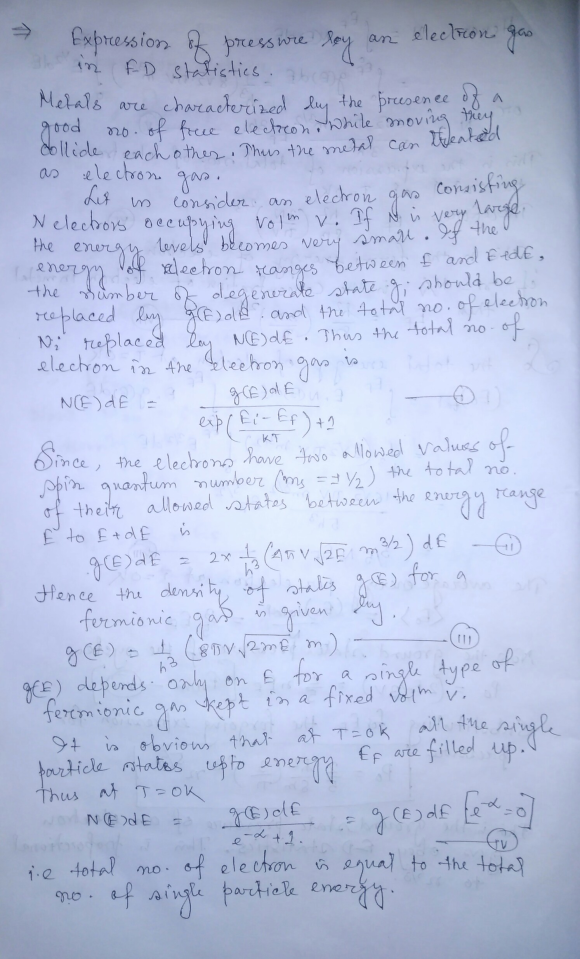 ⇒ Expression of pressure by an electron gas
in FD statistics.
Metals are characterized by the presence of a
good no. of free electron. While moving they
collide each other. Thus the metal can treated
as electron gas.
Let us consider an electron gas consisting
N electrons occupying Vol^m V. If N is very large.
the energy levels becomes very small. If the
energy of electron ranges between E and E+dE,
the number of degenerate state g_i should be
replaced by g(E)dE and the total no. of electron
N_i replaced by N(E)dE. Thus the total no. of
electron in the electron gas is
N(E)dE = g(E)dE / (exp((E_i - E_F)/KT) + 1) — (i)
Since, the electrons have two allowed values of
spin quantum number (m_s = ±1/2) the total no.
of their allowed states between the energy range
E to E+dE is
g(E)dE = 2× 1/h³ (4πV √2E m^{3/2}) dE — (ii)
Hence the density of states g(E) for a
fermionic gas is given by.
g(E) = 1/h³ (8πV √2mE m) — (iii)
g(E) depends only on E for a single type of
fermionic gas kept in a fixed vol^m V.
It is obvious that at T=0K all the single
particle states upto energy E_F are filled up.
Thus at T=0K
N(E)dE = g(E)dE / (e^{-α}+1) = g(E)dE [e^{-α}=0] — (iv)
i.e total no. of electron is equal to the total
no. of single particle energy.